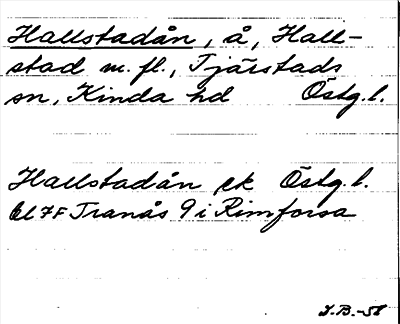 Hallstadån, å, Hall-
stad m.fl., Tjärstads
sn, Kinda hd Östg.l.
Hallstadån ek Östg.l.
bl 7F Tranås 9 i Rimforsa
I.B.-58